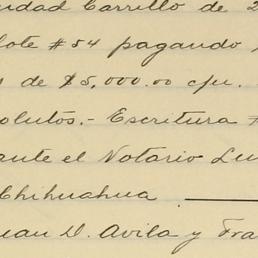 Carrillo de
lote #54 pagando
de $5,000.00 c/u.
solutos.- Escritura #
ante el Notario Lu
Chihuahua
uan D. Avila y Fra